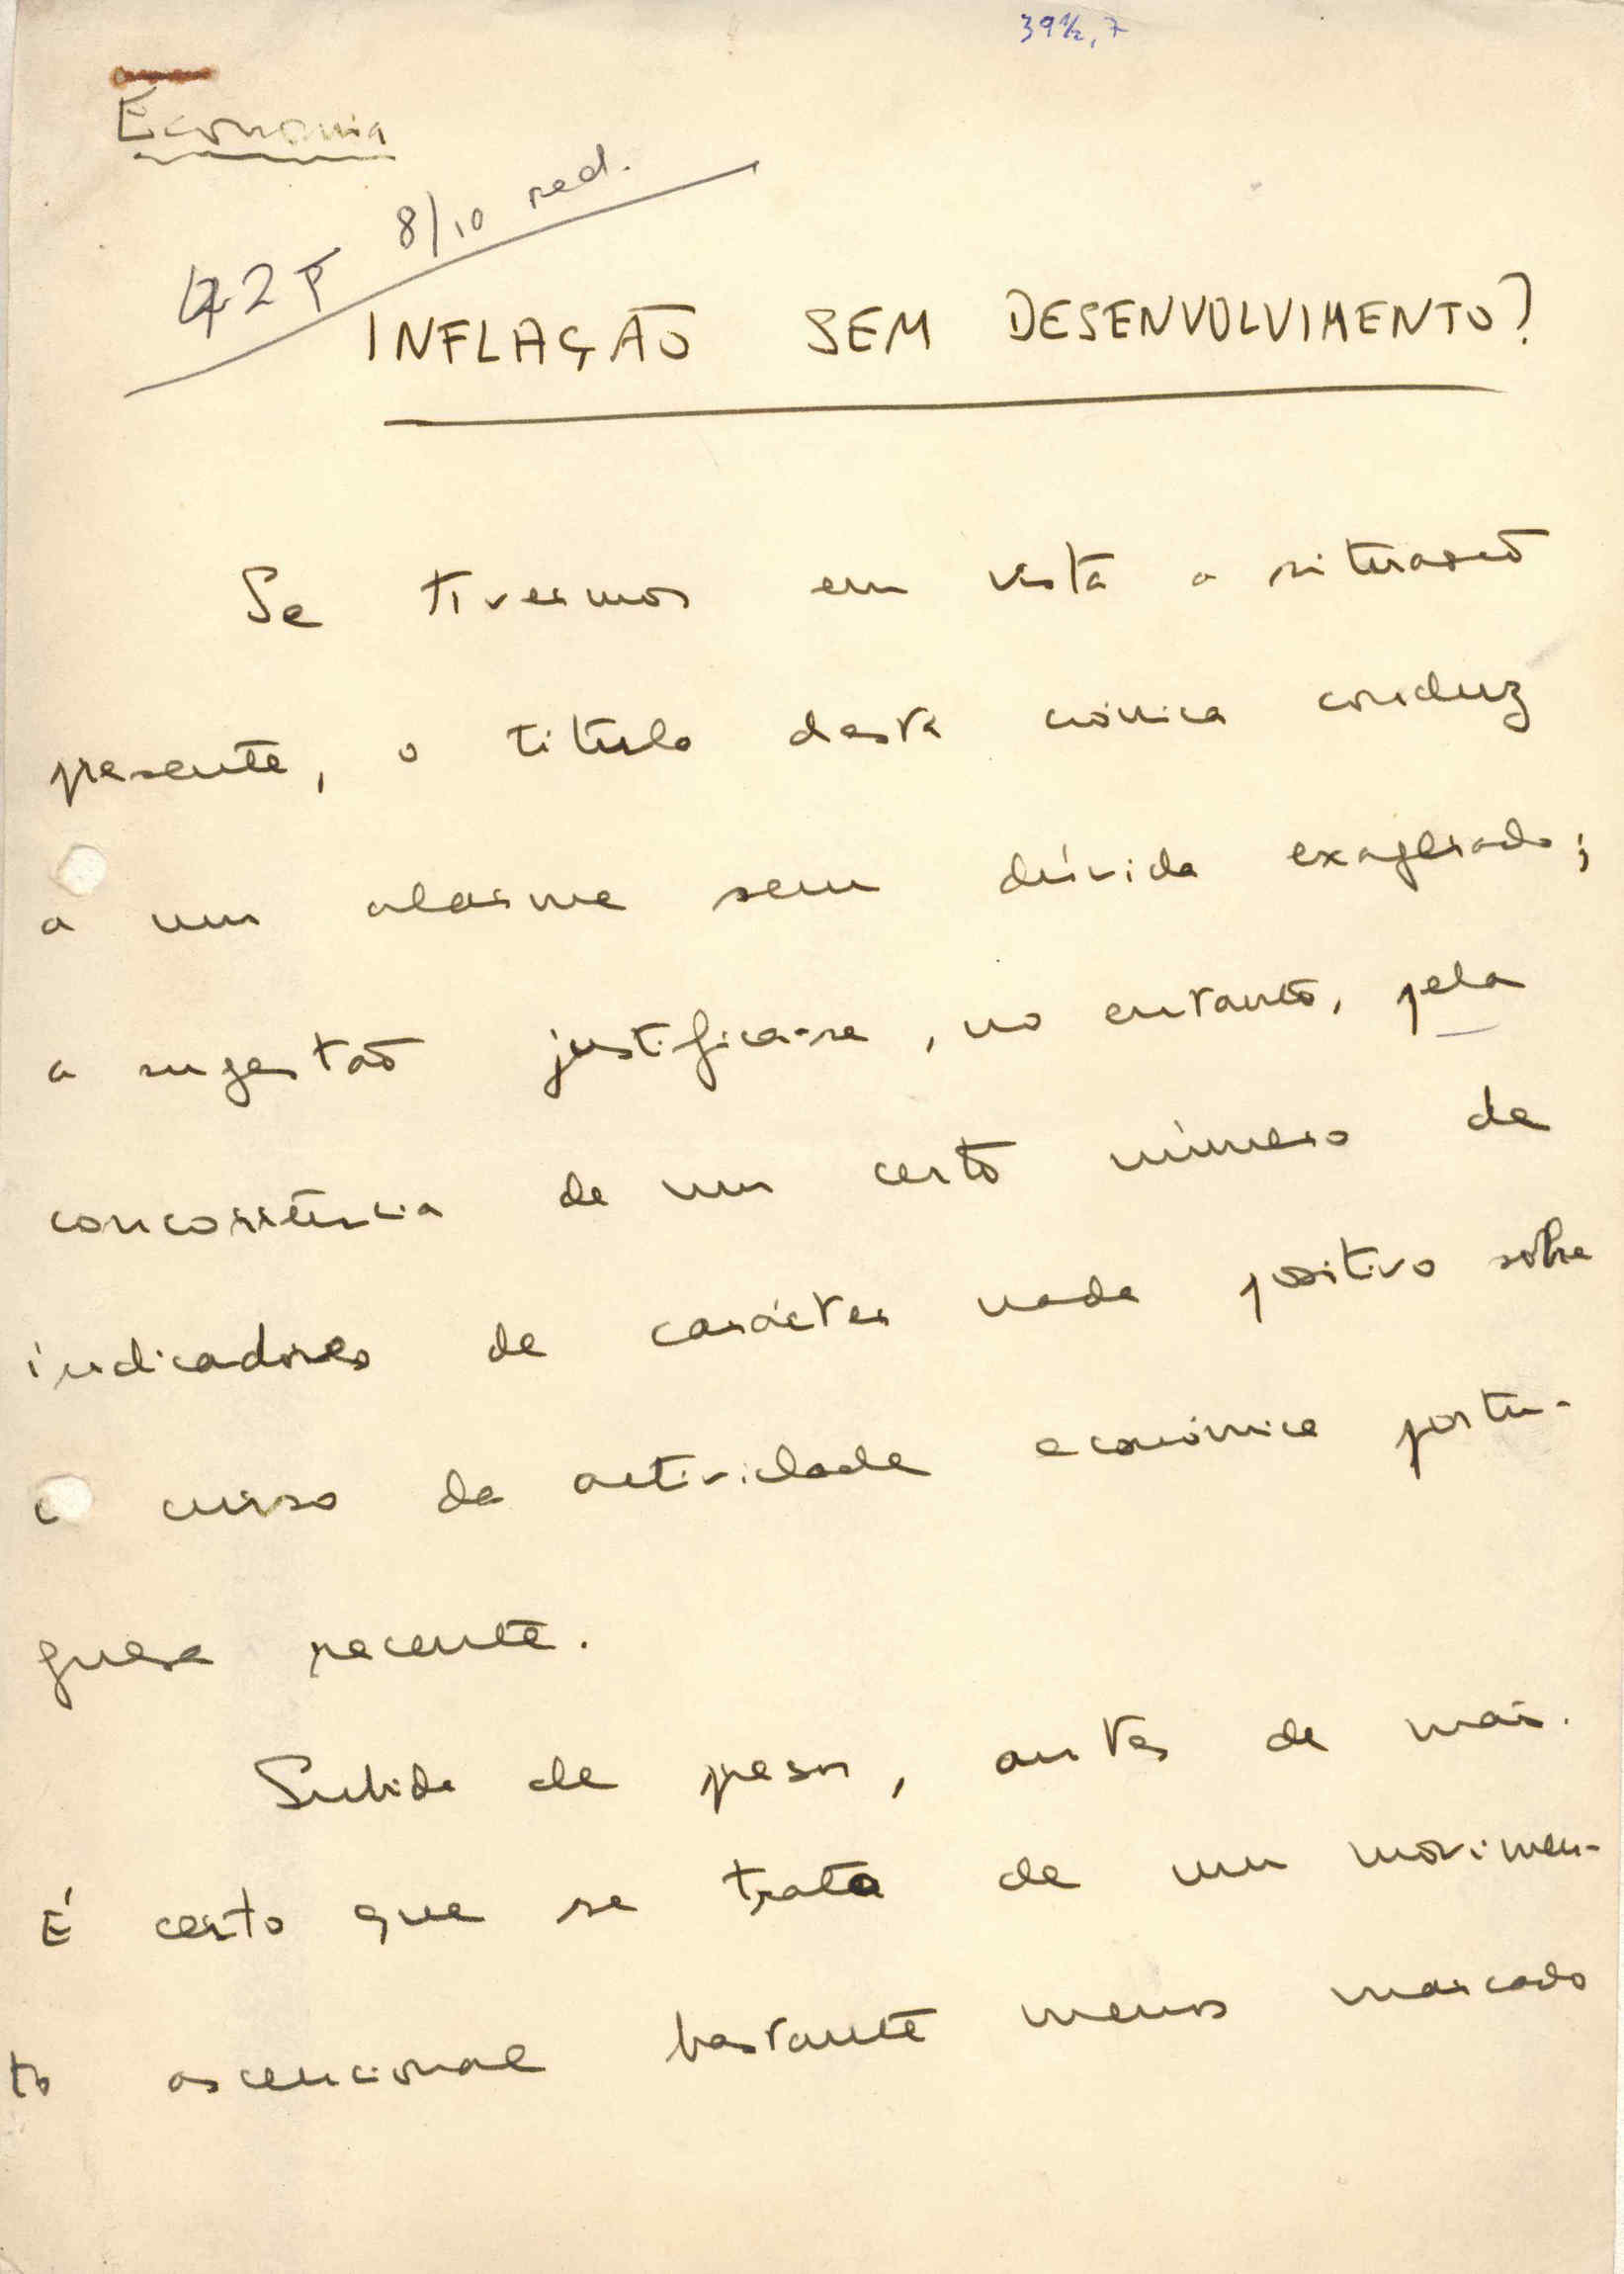 39½, 7
Economia
8/10 red.
INFLAÇÃO SEM DESENVOLVIMENTO?
Se tivermos em vista a situação
presente, o título desta crónica conduz
a um alarme sem dúvida exagerado;
a sugestão justifica-se, no entanto, pela
concorrência de um certo número de
indicadores de carácter nada positivo sôbre
o curso da actividade económica portu-
guesa recente.
Subida de preços, antes de mais.
É certo que se trata de um movimen-
to ascencional bastante menos marcado